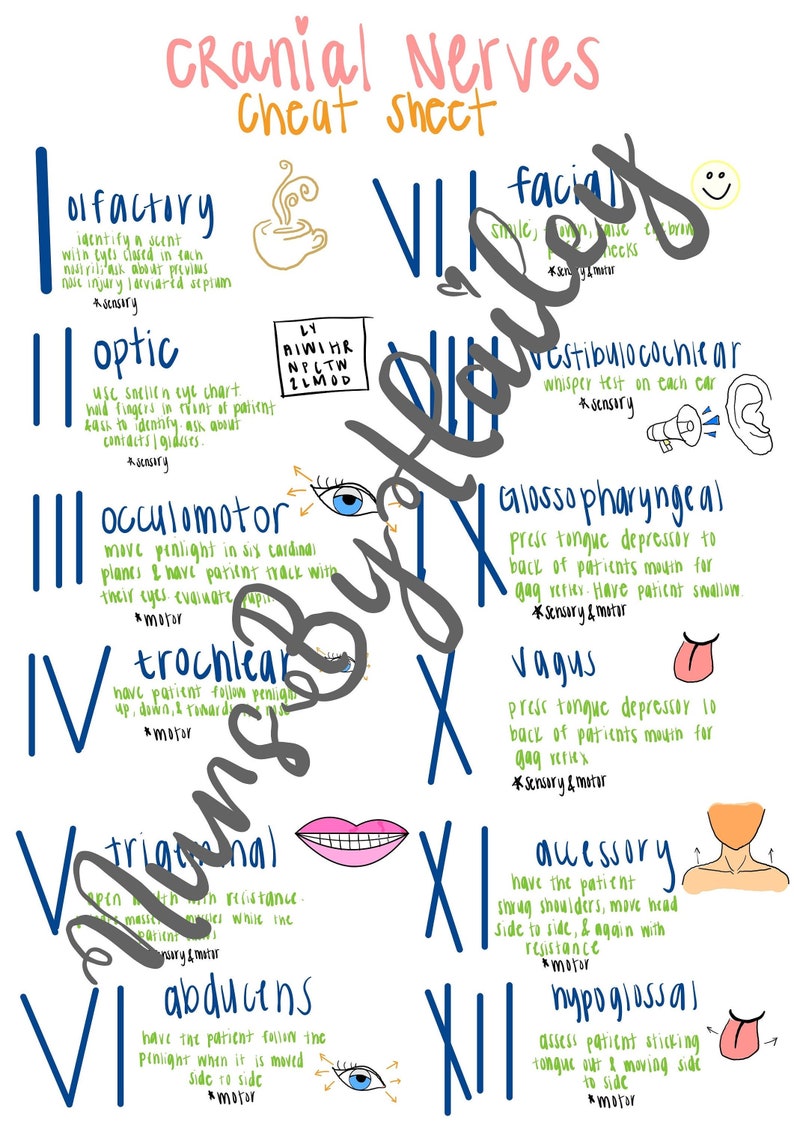 CRanial Nerves
cheat sheet
I
olfactory
identify a scent
with eyes closed in each
nostril; ask about previous
nose injury | deviated septum
*sensory
II
optic
LY
AIWIHR
NPCTW
ZLMOD
use snellen eye chart.
hold fingers in front of patient
& ask to identify. ask about
contacts|glasses.
*sensory
III
occulomotor
move penlight in six cardinal
planes & have patient track with
their eyes. evaluate pupil
*motor
IV
trochlear
have patient follow penlight
up, down, & towards the nose
*motor
V
trigeminal
open mouth with resistance.
masseter muscles while the
patient
*sensory & motor
VI
abducens
have the patient follow the
penlight when it is moved
side to side
*motor
VII
facial
smile, frown, raise eyebrow
puff cheeks
*sensory & motor
VIII
vestibulocochlear
whisper test on each ear
*sensory
IX
Glossopharyngeal
press tongue depressor to
back of patients mouth for
gag reflex. Have patient swallow.
*sensory & motor
X
vagus
press tongue depressor to
back of patients mouth for
gag reflex
*sensory & motor
XI
accessory
have the patient
shrug shoulders, move head
side to side, & again with
resistance
*motor
XII
hypoglossal
assess patient sticking
tongue out & moving side
to side
*motor
NursByHailey